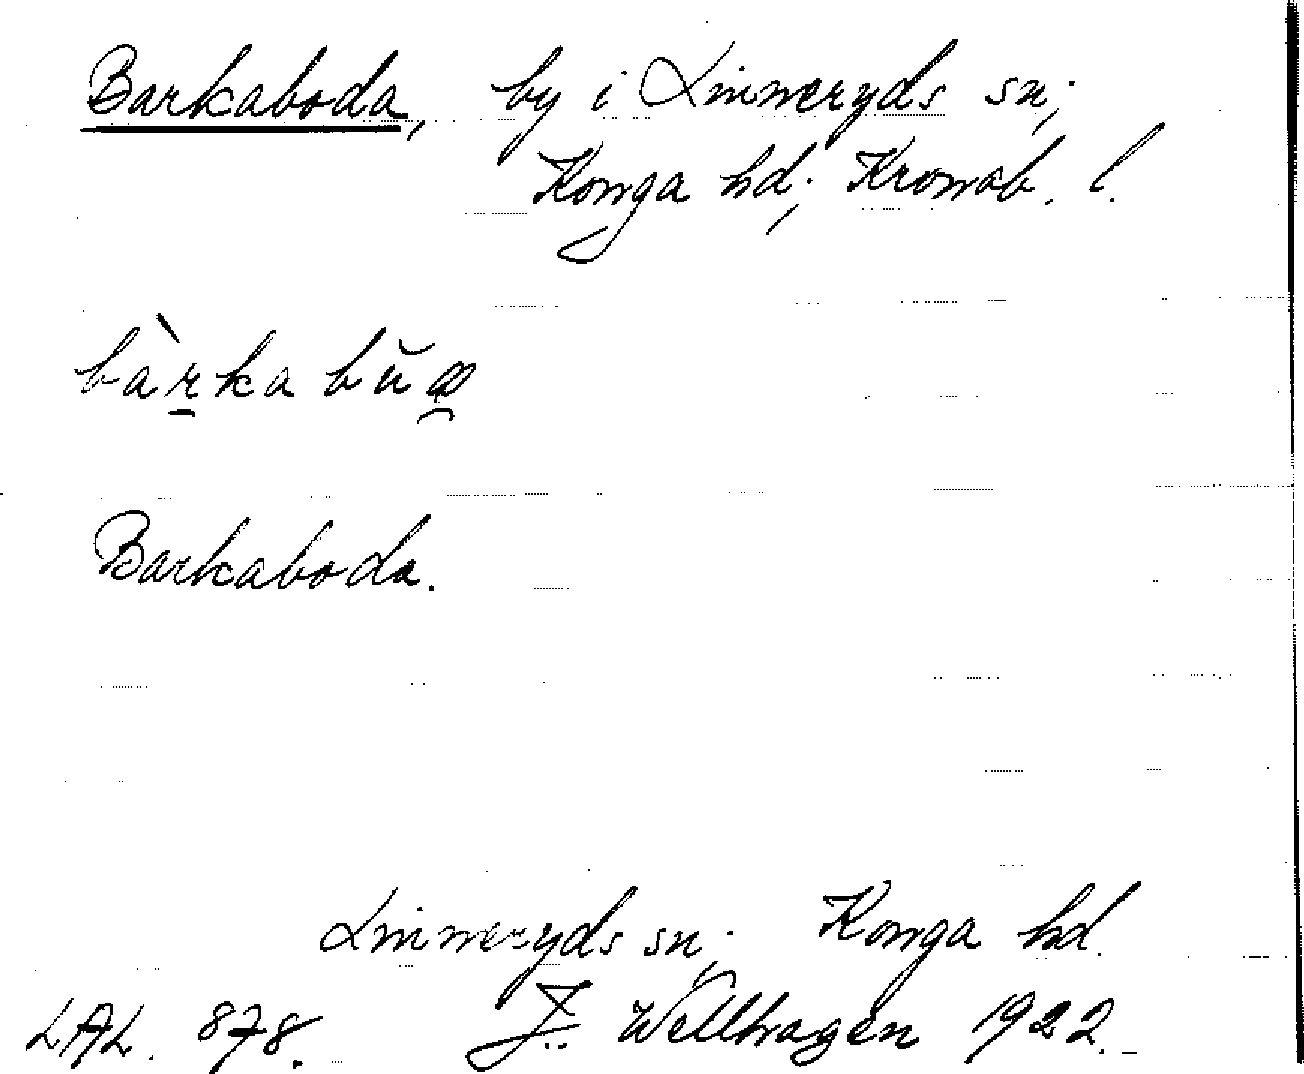 Barkaboda, by i Linneryds sn;
Konga hd; Kronob. l.
bàr̠ka bŭ
Barkaboda.
Linneryds sn; Konga hd.
LAL. 878. J. Wellhagen 1922.